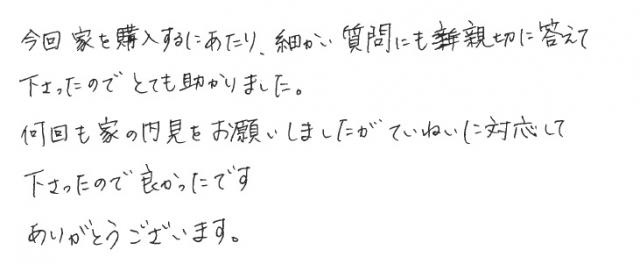 今回家を購入するにあたり、細かい質問にも親切に答えて
下さったのでとても助かりました。
何回も家の内見をお願いしましたがていねいに対応して
下さったので良かったです
ありがとうございます。